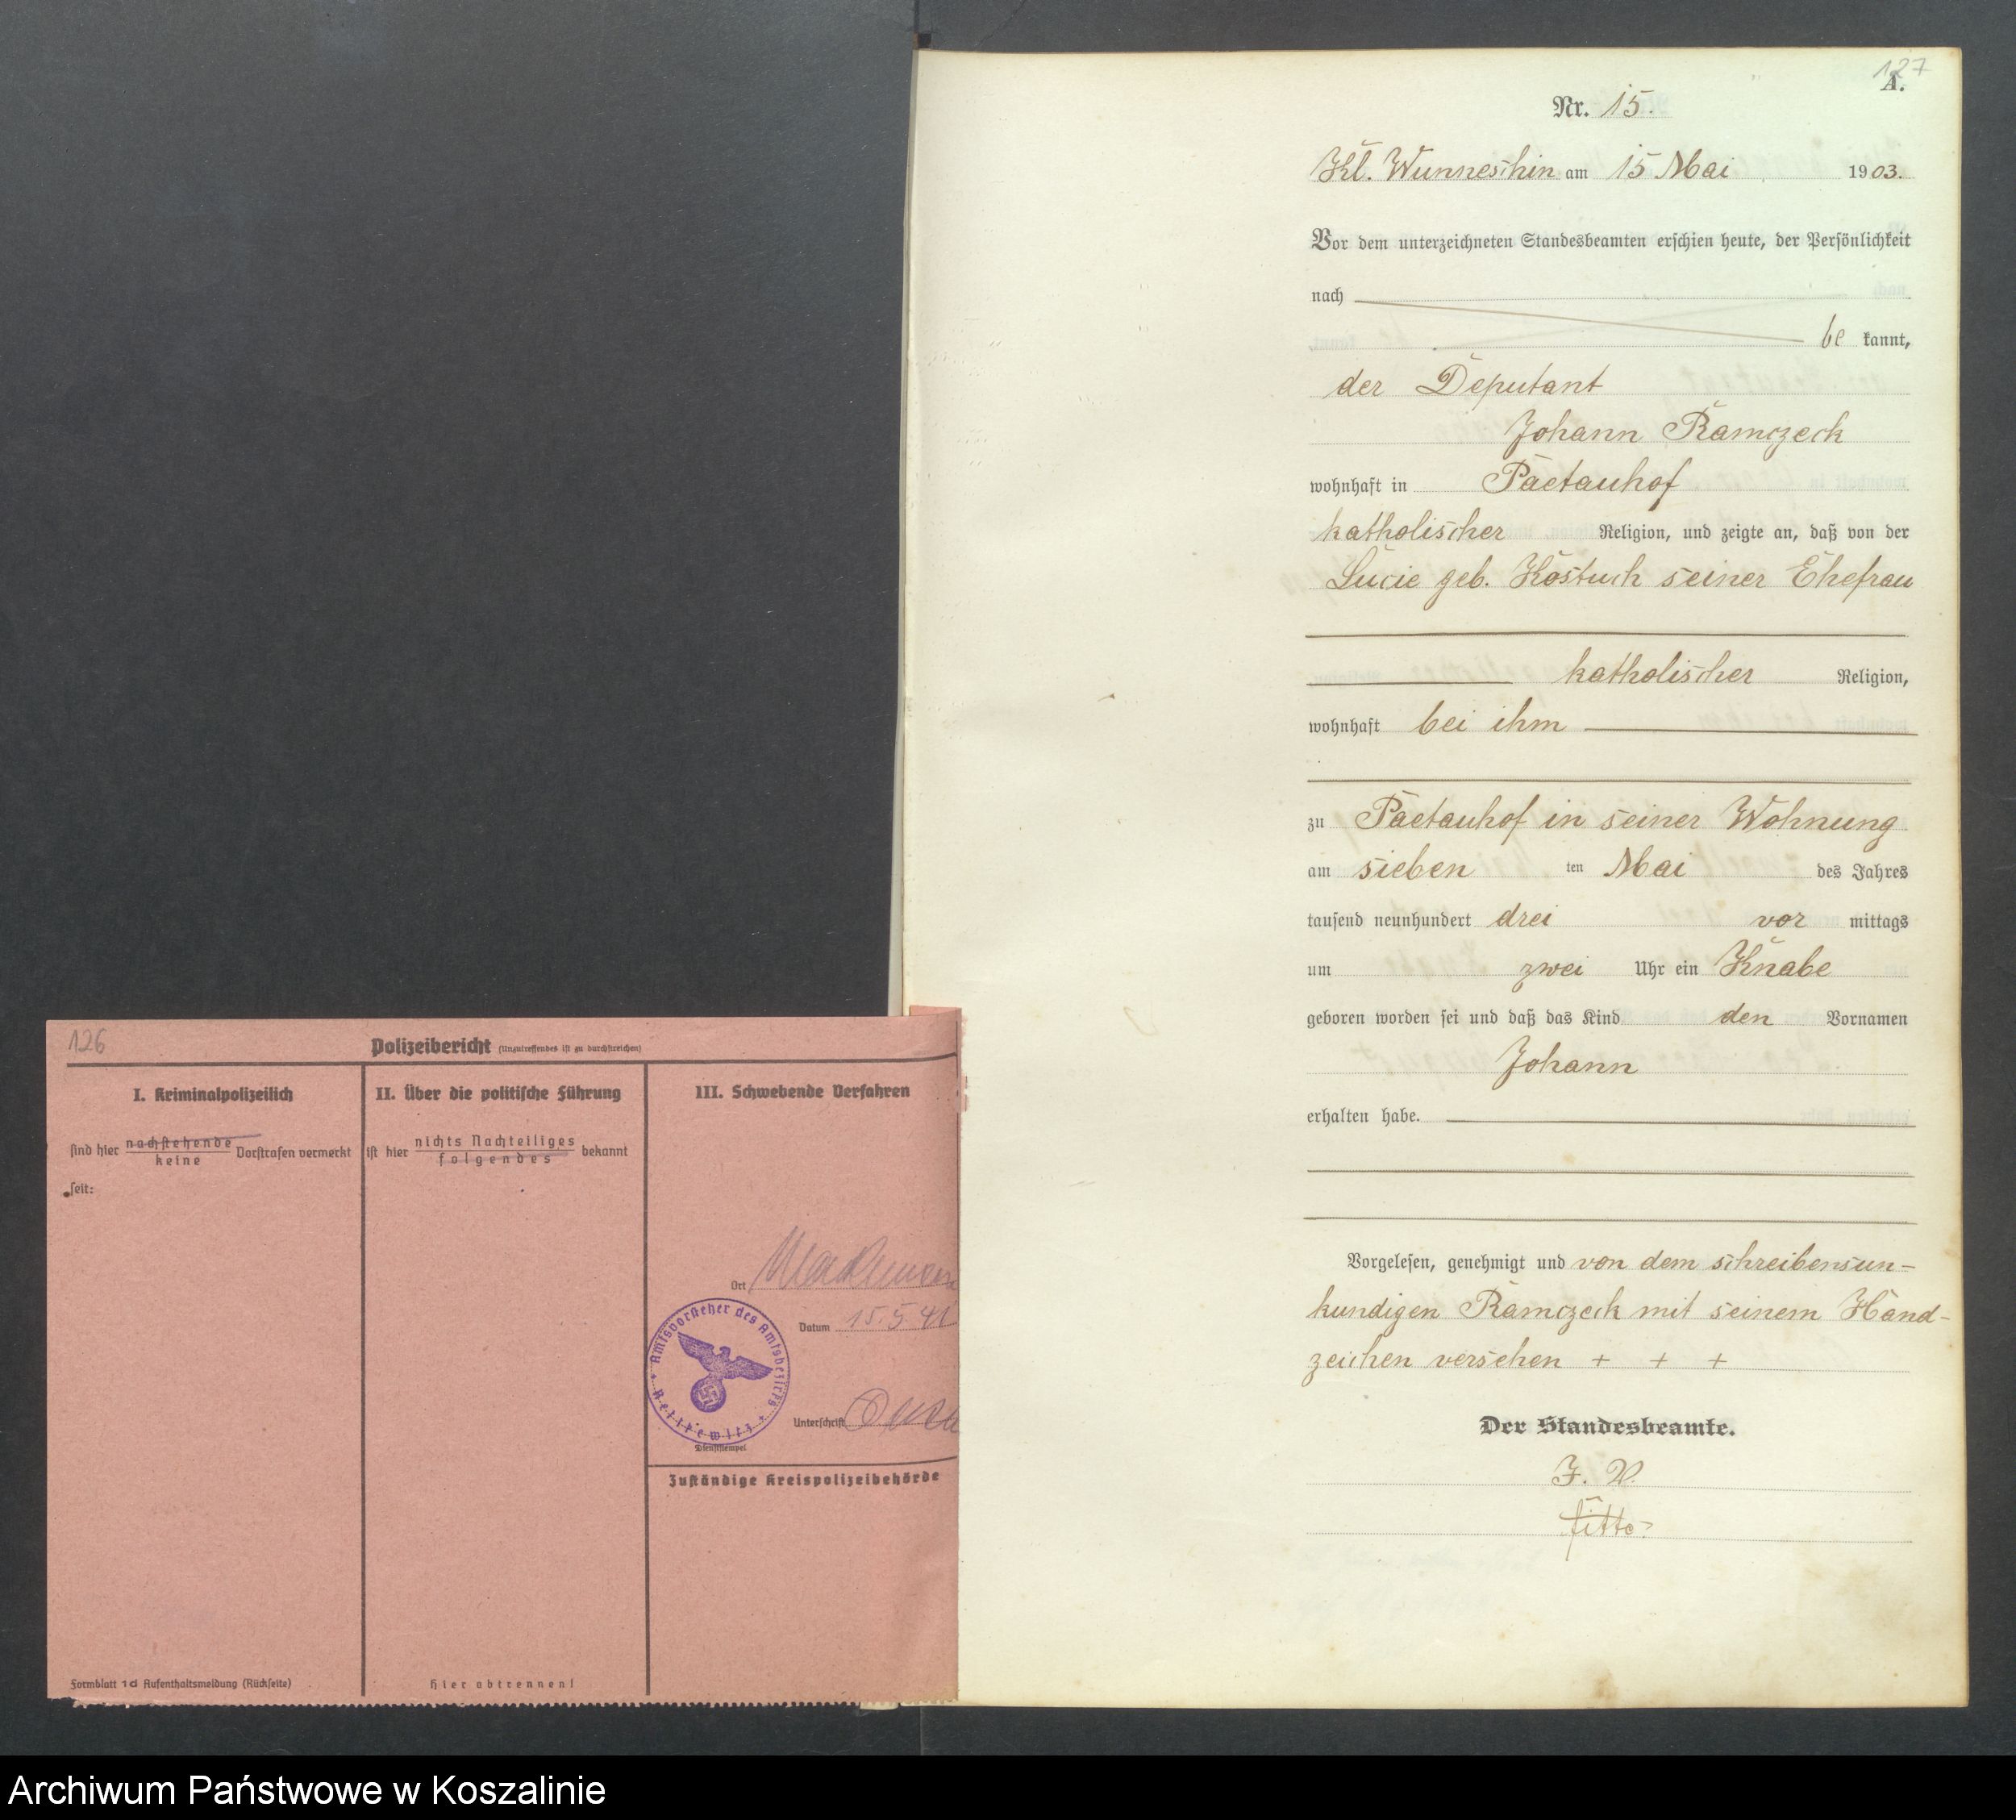 126
Polizeibericht (Unzutreffendes ist zu durchstreichen)
I. Kriminalpolizeilich
sind hier nachstehende
keine Vorstrafen vermerkt
seit:
II. Über die politische Führung
ist hier nichts Nachteiliges
folgendes bekannt
III. Schwebende Verfahren
Ort
Datum 15.5.41
Amtsvorsteher des Amtsbezirks
Unterschrift
Dienststempel
Zuständige Kreispolizeibehörde
Formblatt 1d Aufenthaltsmeldung (Rückseite)
Hier abtrennen!
127
A.
Nr. 15.
Kl. Wunneschin am 15 Mai 1903.
Vor dem unterzeichneten Standesbeamten erschien heute, der Persönlichkeit
nach
be kannt,
der Deputant
Johann Ramczeck
wohnhaft in Paetauhof
katholischer Religion, und zeigte an, daß von der
Lucie geb. Kostuch seiner Ehefrau
katholischer Religion,
wohnhaft bei ihm
zu Paetauhof in seiner Wohnung
am sieben ten Mai des Jahres
tausend neunhundert drei vor mittags
um zwei Uhr ein Knabe
geboren worden sei und daß das Kind den Vornamen
Johann
erhalten habe.
Vorgelesen, genehmigt und von dem schreibensun-
kundigen Ramczeck mit seinem Hand-
zeichen versehen + + +
Der Standesbeamte.
J. V.
Archiwum Państwowe w Koszalinie